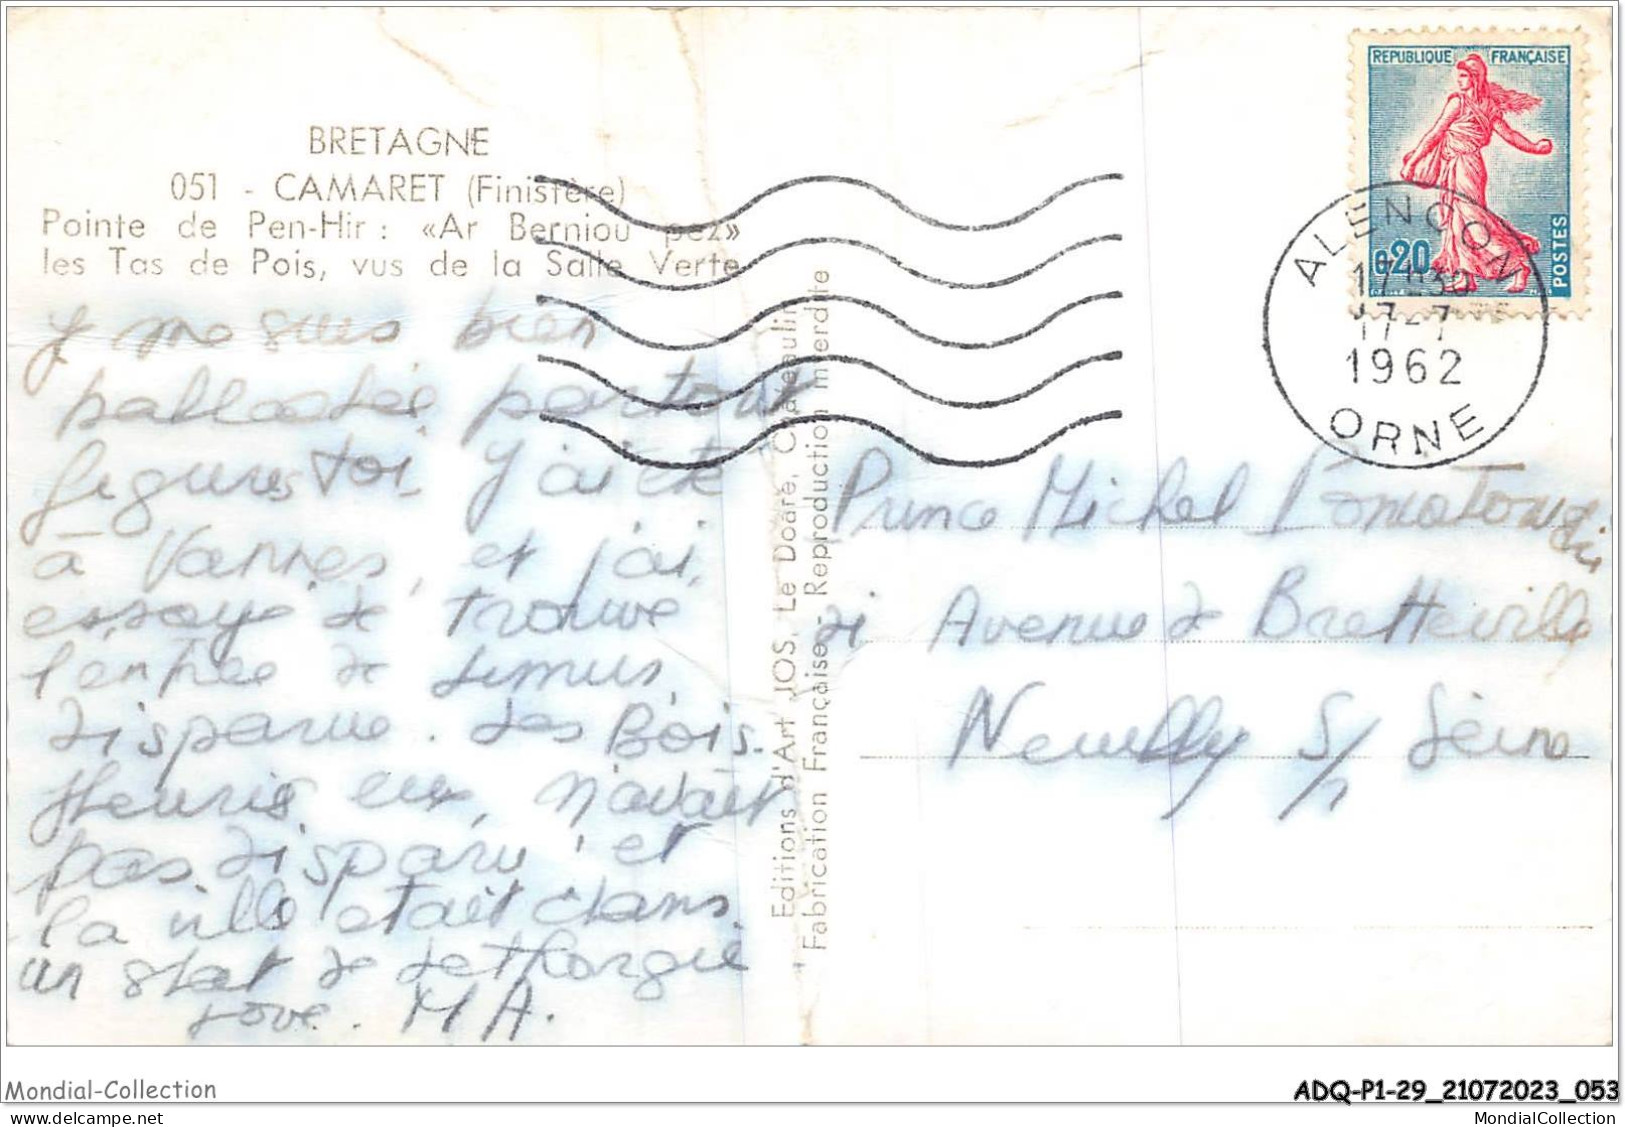 BRETAGNE
051 - CAMARET (Finistère)
Pointe de Pen-Hir : «Ar Berniou pez»
les Tas de Pois, vus de la Salle Verte
REPUBLIQUE FRANÇAISE
0,20
POSTES
ALENCON
17H30
17-7
1962
ORNE
y me suis bien
partout
figures toi j'ai été
à Vannes, et j'ai
essaye de trouve
l'entrée de
disparue. Les Bois.
fleuris eux, n'avait
pas disparu, et
la ville était dans
un état de Lethargie
Love. M A.
Editions d'Art JOS, Le Doaré, Châteaulin
Fabrication Française - Reproduction interdite
Prince Michel
21 Avenue de Bretteville
Neuilly S/ Seine
Mondial-Collection
ADQ-P1-29_21072023_053
MondialCollection